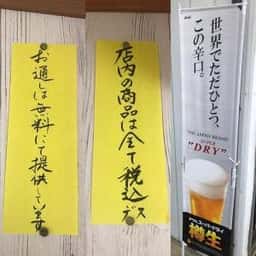 お通しは無料にて提供しています
店内の商品は全て税込デス
世界でただひとつ、
この辛口。
THE JAPAN BRAND
SUPER
"DRY"
アサヒスーパードライ
樽生